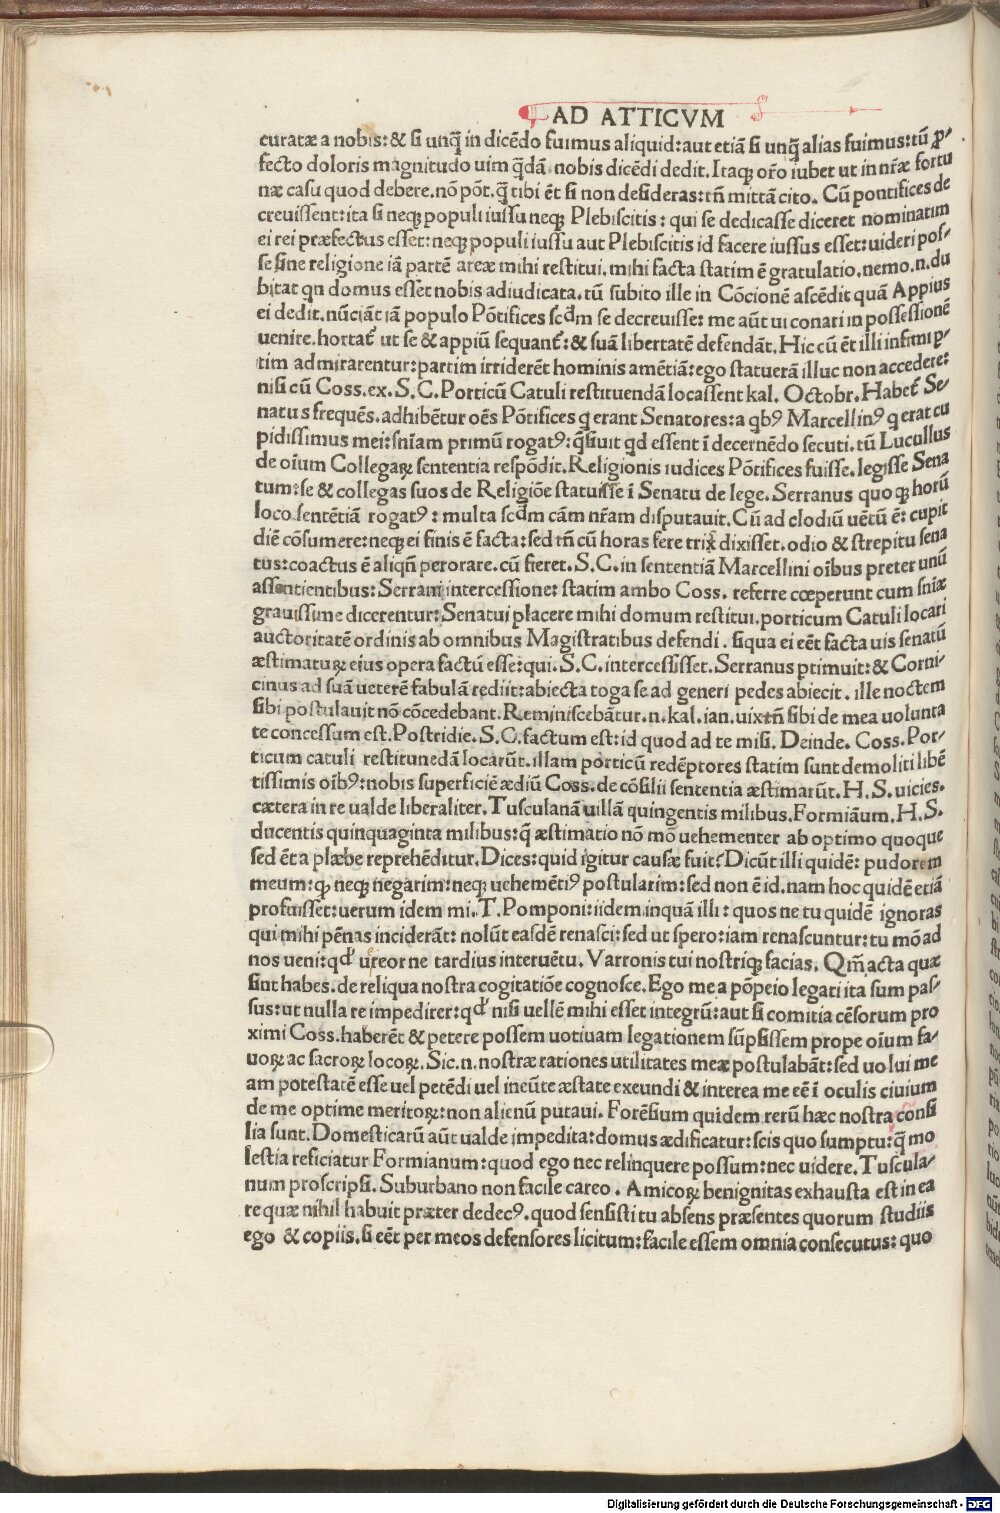 AD ATTICVM
curatæ a nobis: & si unq̃ in dicēdo fuimus aliquid: aut etiã si unq̃ alias fuimus: tū ꝓ-
fecto doloris magnitudo uim q̃dã nobis dicēdi dedit. Itaqꝫ or̃o iubet ut in nr̃æ fortu
næ casu quod debere. nō pōt. q̃ tibi ēt si non desideras: tñ mittã cito. Cū pontifices de
creuissent: ita si neqꝫ populi iussu neqꝫ Plebiscitis: qui se dedicasse diceret nominatim
ei rei præfectus esset: neqꝫ populi iussu aut Plebiscitis id facere iussus esset: uideri pos-
se sine religione iã partē areæ mihi restitui. mihi facta statim ē gratulatio. nemo. n. du
bitat qn domus esset nobis adiudicata. tū subito ille in Cōcionē ascēdit quã Appius
ei dedit. nūciãt iã populo Pōtifices scđm se decreuisse: me aūt ui conari in possessionē
uenire. hortat̃ ut se & appiū sequant̃: & suã libertatē defendãt. Hic cū ēt illi infimi p-
tim admirarentur: partim irriderēt hominis amētiã: ego statuerã illuc non accedere:
nisi cū Coss. ex. S. C. Porticū Catuli restituendã locassent kal. Octobr. Habet̃ Se-
natus frequēs. adhibētur oēs Pōtifices q erant Senatores: a qbꝰ Marcellinꝰ q erat cu
pidissimus mei: sñiam primū rogatꝰ: q̃siuit qd essent ī decernēdo secuti. tū Lucullus
de oīum Collegaꝝ sententia respōdit. Religionis iudices Pōtifices fuisse. legisse Sena
tum: se & collegas suos de Religiōe statuisse ī Senatu de lege. Serranus quoqꝫ horū
loco sentētiã rogatꝰ: multa scđm cãm nr̃am disputauit. Cū ad clodiū uētū ē: cupit
diē cōsumere: neqꝫ ei finis ē facta: sed tñ cū horas fere trix̃ dixisset. odio & strepitu sena
tus: coactus ē aliqñ perorare. cū fieret. S. C. in sententiã Marcellini oībus preter unū
assentientibus: Serrani intercessione: statim ambo Coss. referre cœperunt cum sñiæ
grauissime dicerentur: Senatui placere mihi domum restitui. porticum Catuli locari
auctoritatē ordinis ab omnibus Magistratibus defendi. siqua ei eēt facta uis senatū
æstimaturꝝ eius opera factū esse: qui. S. C. intercessisset. Serranus ptimuit: & Corni-
cinus ad suã ueterē fabulã rediit: abiecta toga se ad generi pedes abiecit. ille noctem
sibi postulauit nō cōcedebant. Reminiscebãtur. n. kal. ian. uix tñ sibi de mea uolunta
te concessum est. Postridie. S. C. factum est: id quod ad te misi. Deinde. Coss. Por-
ticum catuli restitunedã locarūt. illam porticū redēptores statim sunt demoliti libē
tissimis oībꝰ: nobis superficiē ædiū Coss. de cōsilii sententia æstimarūt. H. S. uicies.
cætera in re ualde liberaliter. Tusculanã uillã quingentis milibus. Formiãum. H. S.
ducentis quinquaginta milibus: q̃ æstimatio nō mō uehementer ab optimo quoque
sed ēt a plæbe reprehēditur. Dices: quid igitur causæ fuit? Dicūt illi quidē: pudorem
meum: qꝫ neqꝫ negarim: neqꝫ uehemētiꝰ postularim: sed non ē id. nam hoc quidē etiã
profuisset: uerum idem mi. T. Pomponi: iidem inquã illi: quos ne tu quidē ignoras
qui mihi pēnas inciderãt: nolūt easdē renasci: sed ut spero: iam renascuntur: tu mō ad
nos ueni: qd̓ ureor ne tardius interuētu. Varronis tui nostriqꝫ facias. Qm̃ acta quæ
sint habes. de reliqua nostra cogitatiōe cognosce. Ego me a pōpeio legati ita sum pas-
sus: ut nulla re impedirer: qd̓ nisi uellē mihi esset integrū: aut si comitia cēsorum pro
ximi Coss. haberēt & petere possem uotiuam legationem sūpsissem prope oīum fa-
uoꝝ ac sacroꝝ locoꝝ. Sic. n. nostræ rationes utilitates meæ postulabãt: sed uolui me
am potestatē esse uel petēdi uel ineūte æstate exeundi & interea me eē ī oculis ciuium
de me optime meritoꝝ: non alienū putaui. Forēsium quidem rerū hæc nostra consi
lia sunt. Domesticarū aūt ualde impedita: domus ædificatur: scis quo sumptu: q̃ mo
lestia reficiatur Formianum: quod ego nec relinquere possum: nec uidere. Tuscula-
num proscripsi. Suburbano non facile careo. Amicoꝝ benignitas exhausta est in ea
re quæ nihil habuit præter dedecꝰ. quod sensisti tu absens præsentes quorum studiis
ego & copiis. si eēt per meos defensores licitum: facile essem omnia consecutus: quo
Digitalisierung gefördert durch die Deutsche Forschungsgemeinschaft - DFG